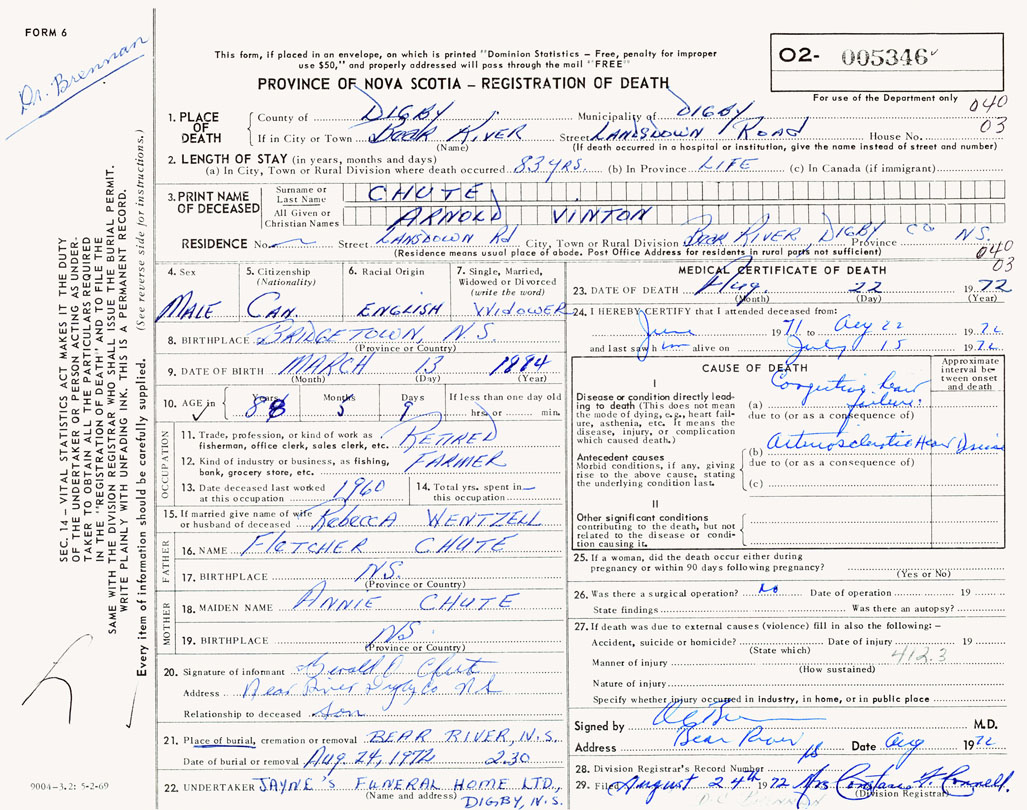 FORM 6
Dr. Brennan
This form, if placed in an envelope, on which is printed "Dominion Statistics – Free, penalty for improper
use $50," and properly addressed will pass through the mail "FREE"
PROVINCE OF NOVA SCOTIA – REGISTRATION OF DEATH
02- 005346
For use of the Department only
040
03
1. PLACE OF DEATH
County of DIGBY Municipality of DIGBY
If in City or Town BEAR RIVER Street LANSDOWN ROAD House No.
(Name) (If death occurred in a hospital or institution, give the name instead of street and number)
2. LENGTH OF STAY (in years, months and days)
(a) In City, Town or Rural Division where death occurred 83 YRS. (b) In Province LIFE (c) In Canada (if immigrant)
3. PRINT NAME OF DECEASED
Surname or Last Name CHUTE
All Given or Christian Names ARNOLD VINTON
RESIDENCE No. Street LANSDOWN Rd City, Town or Rural Division BEAR RIVER DIGBY CO Province N.S.
(Residence means usual place of abode. Post Office Address for residents in rural parts not sufficient)
040
03
4. Sex
MALE
5. Citizenship
(Nationality)
CAN.
6. Racial Origin
ENGLISH
7. Single, Married,
Widowed or Divorced
(write the word)
WIDOWER
8. BIRTHPLACE BRIDGETOWN, N.S.
(Province or Country)
9. DATE OF BIRTH MARCH 13 1884
(Month) (Day) (Year)
10. AGE in Years Months Days If less than one day old
88 5 9 hrs. or min.
OCCUPATION
11. Trade, profession, or kind of work as
fisherman, office clerk, sales clerk, etc. RETIRED
12. Kind of industry or business, as fishing,
bank, grocery store, etc. FARMER
13. Date deceased last worked
at this occupation 1960
14. Total yrs. spent in
this occupation
15. If married give name of wife
or husband of deceased Rebecca WENTZELL
FATHER
16. NAME FLETCHER CHUTE
17. BIRTHPLACE N.S.
(Province or Country)
MOTHER
18. MAIDEN NAME ANNIE CHUTE
19. BIRTHPLACE N.S.
(Province or Country)
20. Signature of informant Gerald Chute
Address Bear River Digby Co N.S.
Relationship to deceased Son
21. Place of burial, cremation or removal BEAR RIVER, N.S.
Date of burial or removal Aug. 24, 1972 2.30
22. UNDERTAKER JAYNE'S FUNERAL HOME LTD.,
(Name and address) DIGBY, N.S.
MEDICAL CERTIFICATE OF DEATH
23. DATE OF DEATH Aug. 22 1972
(Month) (Day) (Year)
24. I HEREBY CERTIFY that I attended deceased from:
June 1971 to Aug 22 1972
and last saw him alive on July 15 1972
CAUSE OF DEATH
Approximate interval between onset and death
I
Disease or condition directly leading to death (This does not mean the mode of dying, e.g., heart failure, asthenia, etc. It means the disease, injury, or complication which caused death.)
(a) Congestive heart failure
due to (or as a consequence of)
Antecedent causes
Morbid conditions, if any, giving rise to the above cause, stating the underlying condition last.
(b) Arteriosclerotic Heart Disease
due to (or as a consequence of)
(c)
II
Other significant conditions
contributing to the death, but not related to the disease or condition causing it.
25. If a woman, did the death occur either during
pregnancy or within 90 days following pregnancy?
(Yes or No)
26. Was there a surgical operation? No Date of operation 19
State findings Was there an autopsy?
27. If death was due to external causes (violence) fill in also the following: –
Accident, suicide or homicide? Date of injury 19
(State which)
412.3
Manner of injury
(How sustained)
Nature of injury
Specify whether injury occurred in industry, in home, or in public place
Signed by M.D.
Address Bear River NS Date Aug 1972
28. Division Registrar's Record Number
29. Filed August 24th 1972 Mrs Constance F. Connell.
(Division Registrar)
SEC. 14 – VITAL STATISTICS ACT MAKES IT THE DUTY
OF THE UNDERTAKER OR PERSON ACTING AS UNDER-
TAKER TO OBTAIN ALL THE PARTICULARS REQUIRED
IN THE "REGISTRATION OF DEATH" AND TO FILE THE
SAME WITH THE DIVISION REGISTRAR WHO SHALL ISSUE THE BURIAL PERMIT.
WRITE PLAINLY WITH UNFADING INK. THIS IS A PERMANENT RECORD.
Every item of information should be carefully supplied. (See reverse side for instructions.)
9004–3.2: 5-2-69